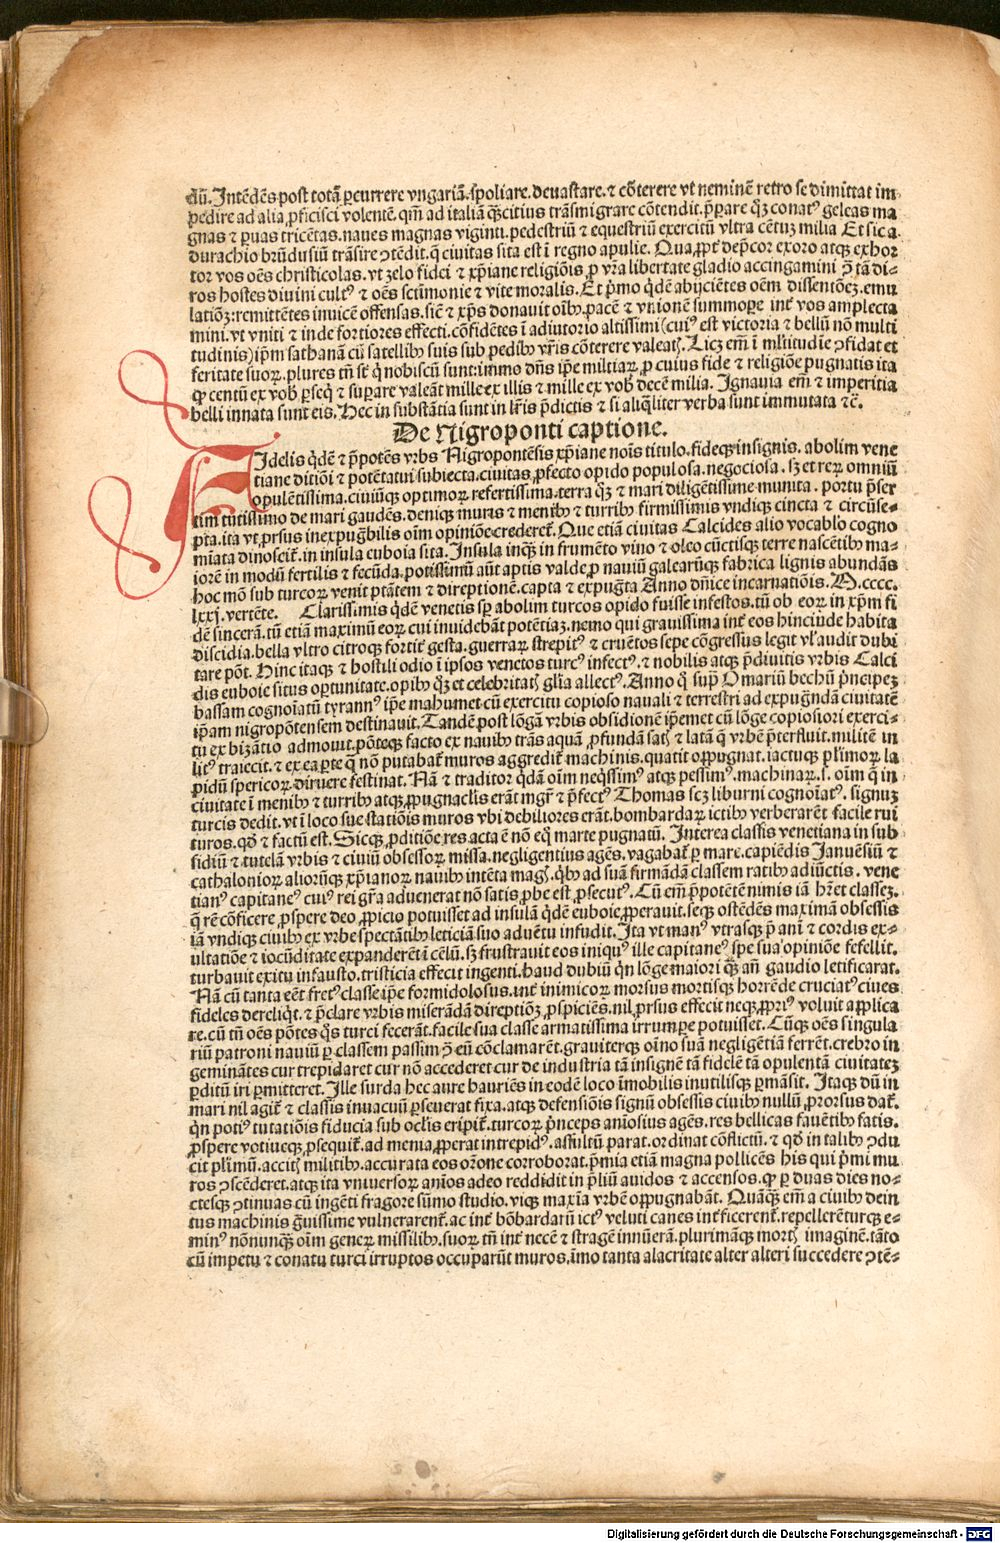 dũ. Intẽdẽs post totã ꝑcurrere vngariã. spoliare. deuastare. ⁊ cõterere vt neminẽ retro se dimittat im-
pedire ad alia ꝓficisci volentẽ. qm̃ ad italiã q̃ꝫcitius trãsmigrare cõtendit. p̃parare q̃ꝫ conatꝰ geleas ma
gnas ⁊ ꝑuas tricẽtas. naues magnas viginti. pedestriũ ⁊ equestriũ exercitũ vltra cẽtuꝫ milia Et sic a
durachio brũdusiũ trãsire ꝯtẽdit. q̃ ciuitas sita est ĩ regno apulie. Qua.ꝓpt̃ dep̃cor exoro atqꝫ exhor
tor vos oẽs christicolas. vt zelo fidei ⁊ xp̃iane religiõis ꝓ vr̃a libertate gladio accingamini ꝯ̃ tã di-
ros hostes diuini cultꝰ ⁊ oẽs sctĩmonie ⁊ vite moralis. Et p̃mo q̃dẽ abijciẽtes oẽm dissentõeꝫ. emu
latiõꝫ: remittẽtes inuicẽ offensas. sic̃ ⁊ xp̃s donauit oĩbꝰ pacẽ ⁊ vnionẽ summope int̃ vos amplecta
mini. vt vniti ⁊ inde fortiores effecti. cõfidẽtes ĩ adiutorio altissimi (cuiꝰ est victoria ⁊ bellũ nõ multi
tudinis) ip̃m sathanã cũ satellibꝰ suis sub pedibꝰ vr̃is cõterere valeatꝭ. Licꝫ em̃ ĩ ml̃titudie ꝯfidat et
feritate suoꝝ. plures tñ sẽ q̃ nobiscũ sunt: immo dñs ip̃e militiaꝝ ꝓ cuius fide ⁊ religiõe pugnatis ita
ꝙ centũ ex vob̃ ꝑseq̃ ⁊ suꝑare valeãt mille ex illis ⁊ mille ex vob̃ decẽ milia. Ignauia em̃ ⁊ imperitia
belli innata sunt eis. Hec in substãtia sunt in lr̃is p̃dictis ⁊ si aliq̃liter verba sunt immutata ⁊c̃.
De Nigroponti captione.
FIdelis q̃dẽ ⁊ p̃potẽs vrbs Nigropontẽsis xp̃iane nois̃ titulo. fideqꝫ insignis. abolim vene
tiane ditiõi ⁊ potẽtatui subiecta. ciuitas ꝓfecto opido populosa. negociosa. sꝫ et reꝝ omniũ
opulẽtissima. ciuiũqꝫ optimoꝝ refertissima. terra q̃ꝫ ⁊ mari diligẽtissime munita. portu p̃ser
tim tutissimo de mari gaudẽs. deniqꝫ muris ⁊ menibꝰ ⁊ turribꝰ firmissimis vndiqꝫ cincta ⁊ circũse-
pta. ita vt ꝓrsus inexpugbilis̃ oĩm opiniõe crederet̃. Que etiã ciuitas Calcides alio vocablo cogno
mĩata dinoscit̃. in insula euboia sita. Insula inqꝫ in frumẽto vino ⁊ oleo cũctisqꝫ terre nascẽtibꝰ ma-
iorẽ in modũ fertilis ⁊ fecũda. potissimũ aũt aptis valde ꝓ nauiũ galearũqꝫ fabrica lignis abundãs
hoc mõ sub turcoꝝ venit ptãtem ⁊ direptionẽ. capta ⁊ expugta Anno dñice incarnatiõis. M.cccc.
lxxj. vertẽte. Clarissimis q̃dẽ venetis sp̃ abolim turcos opido fuisse infestos. tũ ob eoꝝ in xp̃m fi
dẽ sincerã. tũ etiã maximũ eoꝝ cui inuidebãt potẽtiaꝫ. nemo qui grauissima int̃ eos hincinde habita
discidia. bella vltro citroqꝫ fortit̃ gesta. guerraꝝ strepitꝰ ⁊ cruẽtos sepe cõgressus legit vl̃ audit dubi
tare põt. Hinc itaqꝫ ⁊ hostili odio ĩ ipsos venetos turcꝰ infectꝰ. ⁊ nobilis atqꝫ p̃diuitis vrbis Calci
dis euboie situs oꝑtunitate. opibꝰ q̃ꝫ et celebritatꝭ gl̃ia allectꝰ. Anno q̃ sup̃ Omariũ bechũ p̃ncipeꝫ
bassam cognoĩatũ tyrannꝰ ip̃e mahumet cũ exercitu copioso nauali ⁊ terrestri ad expugñdã ciuitatẽ
ip̃am nigropõtensem destinauit. Tandẽ post lõgã vrbis obsidionẽ ip̃emet cũ lõge copiosiori exerci-
tu ex bizãtio admouit. põteqꝫ facto ex nauibꝰ trãs aquã ꝓfundã satꝭ ⁊ latã q̃ vrbẽ p̃terfluit. militẽ in
litꝰ traiecit. ⁊ ex ea parte q̃ nõ putabat̃ muros aggredit̃ machinis. quatit oppugnat. iactuqꝫ pl̃imoꝝ la
pidũ spericoꝝ. diruere festinat. Nã ⁊ traditor q̃dã oĩm neq̃ssimꝰ atqꝫ pessimꝰ. machinaꝝ. s. oĩm q̃ in
ciuitate ĩ menibꝰ ⁊ turribꝰ atqꝫ ꝓpugnacl̃is erãt mgr̃ ⁊ p̃fectꝰ Thomas scꝫ liburni cognoĩatꝰ. signuꝫ
turcis dedit. vt ĩ loco sue statiõis muros vbi debiliores erãt. bombardaꝝ ictibꝰ verberarẽt facile rui
turos. qd̃ ⁊ factũ est. Sicqꝫ ꝓditiõe res acta ẽ nõ eq̃ marte pugnatũ. Interea classis venetiana in sub
sidiũ ⁊ tutelã vrbis ⁊ ciuiũ obsessoꝝ missa. negligentius agẽs. vagabat̃ ꝑ mare. capiẽdis Januẽsiũ ⁊
cathalonioꝝ aliorũqꝫ xp̃ianoꝝ nauibꝰ intẽta magꝭ. q̃bꝰ ad suã firmãdã classem ratibꝰ adiũctis. vene
tianꝰ capitaneꝰ cuiꝰ rei gr̃a aduenerat nõ satis ꝓbe est ꝓsecutꝰ. Cũ em̃ p̃potẽtẽ nimis iã hr̃et classeꝫ.
q̃ rẽ cõficere ꝓspere deo ꝓpicio potuisset ad insulã q̃dẽ euboie ꝓperauit. seqꝫ ostẽdẽs maximã obsessis
iã vndiqꝫ ciuibꝰ ex vrbe spectãtibꝰ leticiã suo aduẽtu infudit. Ita vt manꝰ vtrasqꝫ p̃ ani̋ ⁊ cordis ex-
ultatiõe ⁊ iocũditate expanderẽt ĩ celũ. sꝫ frustrauit eos iniquꝰ ille capitaneꝰ spe sua opiniõe fefellit.
turbauit exitu infausto. tristicia effecit ingenti. haud dubiũ q̃n lõge maiori q̃ꝫ añ gaudio letificarat.
Nã cũ tanta eẽt fretꝰ classe ip̃e formidolosus. int̃ inimicoꝝ morsus mortisqꝫ horrẽde cruciatꝰ ciues
fideles dereliq̃t. ⁊ p̃clare vrbis miserãdã direptiõꝫ ꝓspiciẽs. nil ꝓrsus effecit neqꝫ ꝓpriꝰ voluit applica
re. cũ tñ oẽs põtes q̃s turci fecerãt. facile sua classe armatissima irrumꝑe potuisset. Cũqꝫ oẽs singula
riũ patroni nauiũ ꝑ classem passim ꝯ̃ eũ cõclamarẽt. grauiterqꝫ oĩno suã negligẽtiã ferrẽt. crebro in
geminãtes cur trepidaret cur nõ accederet cur de industria tã insignẽ tã fidelẽ tã opulentã ciuitateꝫ
ꝑditũ iri ꝑmitteret. Ille surda hec aure hauriẽs in eodẽ loco ĩmobilis inutilisqꝫ ꝑmãsit. Itaqꝫ dũ in
mari nil agit̃ ⁊ classis inuacuũ ꝑseuerat fixa. atqꝫ defensiõis signũ obsessis ciuibꝰ nullũ ꝓrorsus dat̃.
q̃n potiꝰ tutatiõis fiducia sub oclis eripit̃. turcoꝝ p̃nceps aniosius agẽs. res bellicas fauẽtibꝰ fatis.
ꝓspere votiueqꝫ ꝓsequit̃. ad menia ꝓperat intrepidꝰ. assultũ parat. ordinat cõflictũ. ⁊ qd̃ in talibꝰ ꝯdu
cit pl̃imũ. accitꝭ militibꝰ. accurata eos or̃one corroborat. p̃mia etiã magna pollicẽs his qui p̃mi mu
ros ꝯscẽderet. atqꝫ ita vniuersoꝝ anios̃ adeo reddidit in p̃liũ auidos ⁊ accensos. ꝙ ꝑ duas dies no-
ctesqꝫ ꝯtinuas cũ ingẽti fragore sũmo studio. viqꝫ maxĩa vrbẽ oppugnabãt. Quãqꝫ em̃ a ciuibꝰ dein
tus machinis g̃uissime vulnerarent̃. ac int̃ bõbardarũ ictꝰ veluti canes int̃ficerent̃. repellerẽturqꝫ e-
minꝰ nõnunq̃ꝫ oĩm generꝝ missilibꝰ. suoꝝ tñ int̃ necẽ ⁊ stragẽ innũerã. plurimãqꝫ mortꝭ imaginẽ. tãto
cũ impetu ⁊ conatu turci irruptos occuparũt muros. ĩmo tanta alacritate alter alteri succedere ꝯtẽ-
Digitalisierung gefördert durch die Deutsche Forschungsgemeinschaft - DFG